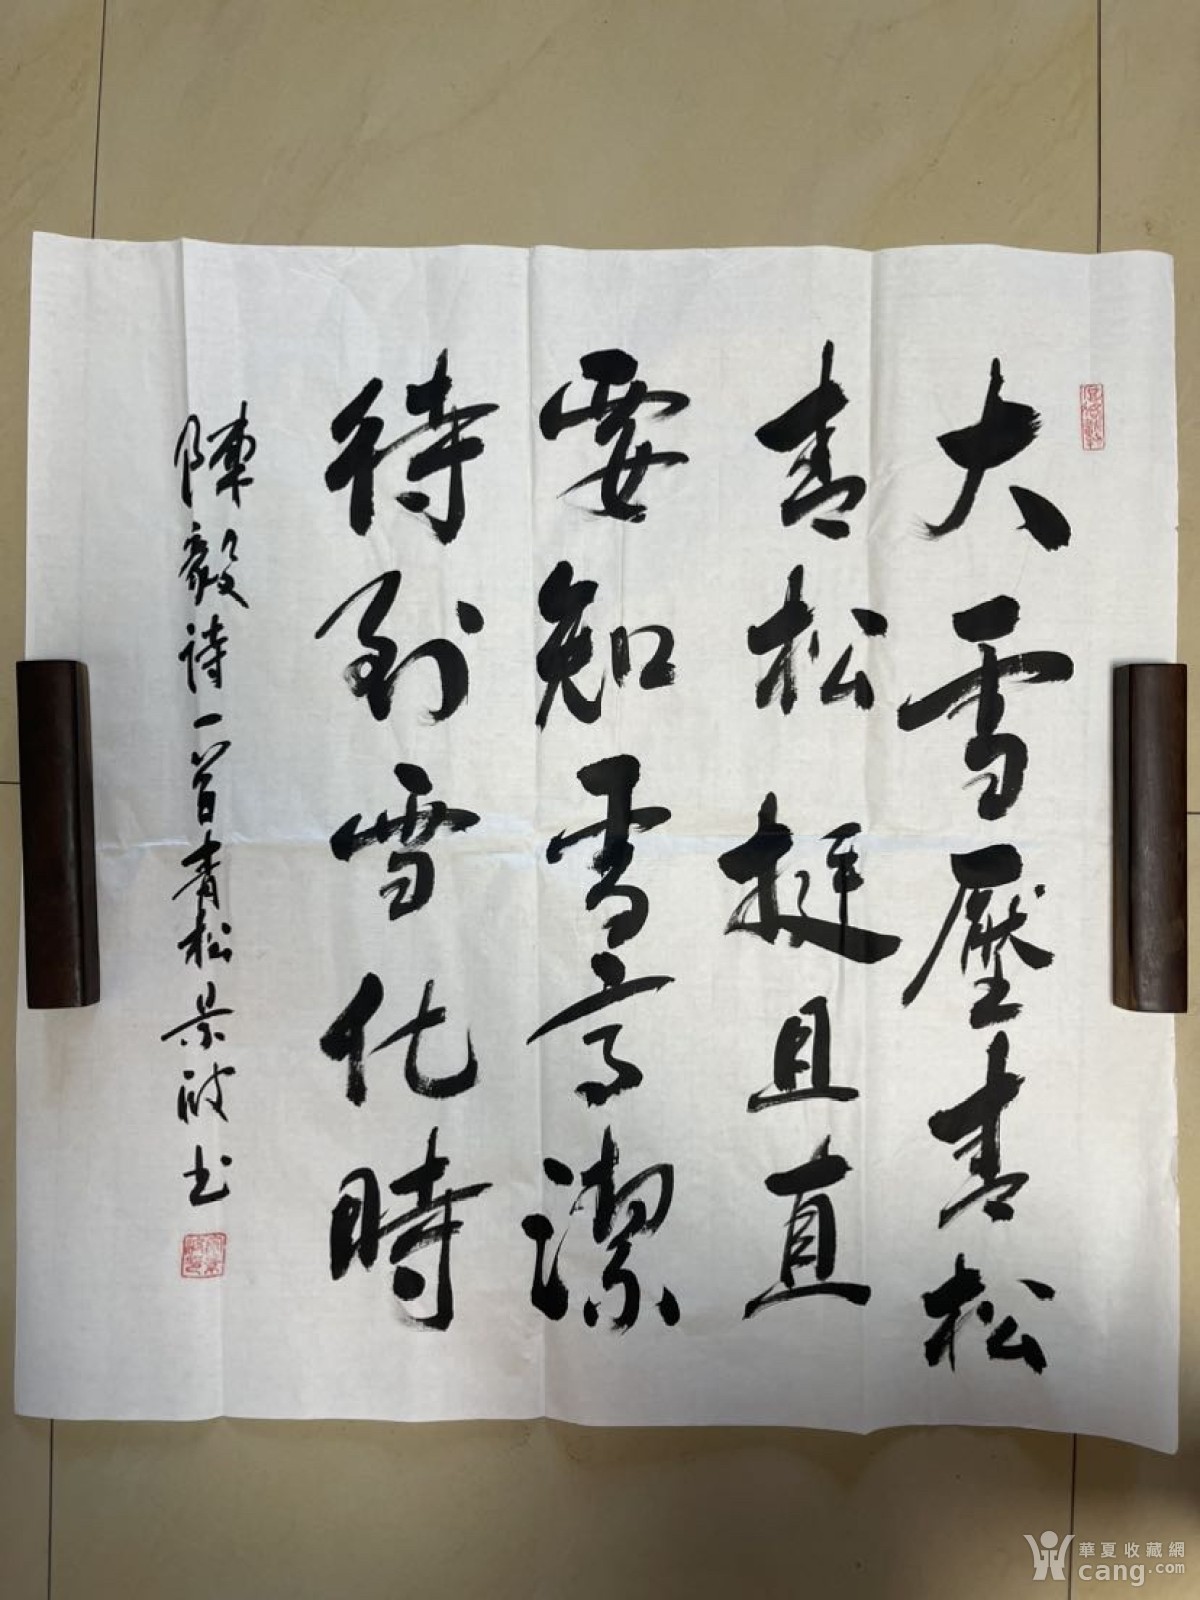 大雪壓青松
青松挺且直
要知雪高潔
待到雪化時
陳毅詩一首青松景波书
華夏收藏網
cang.com